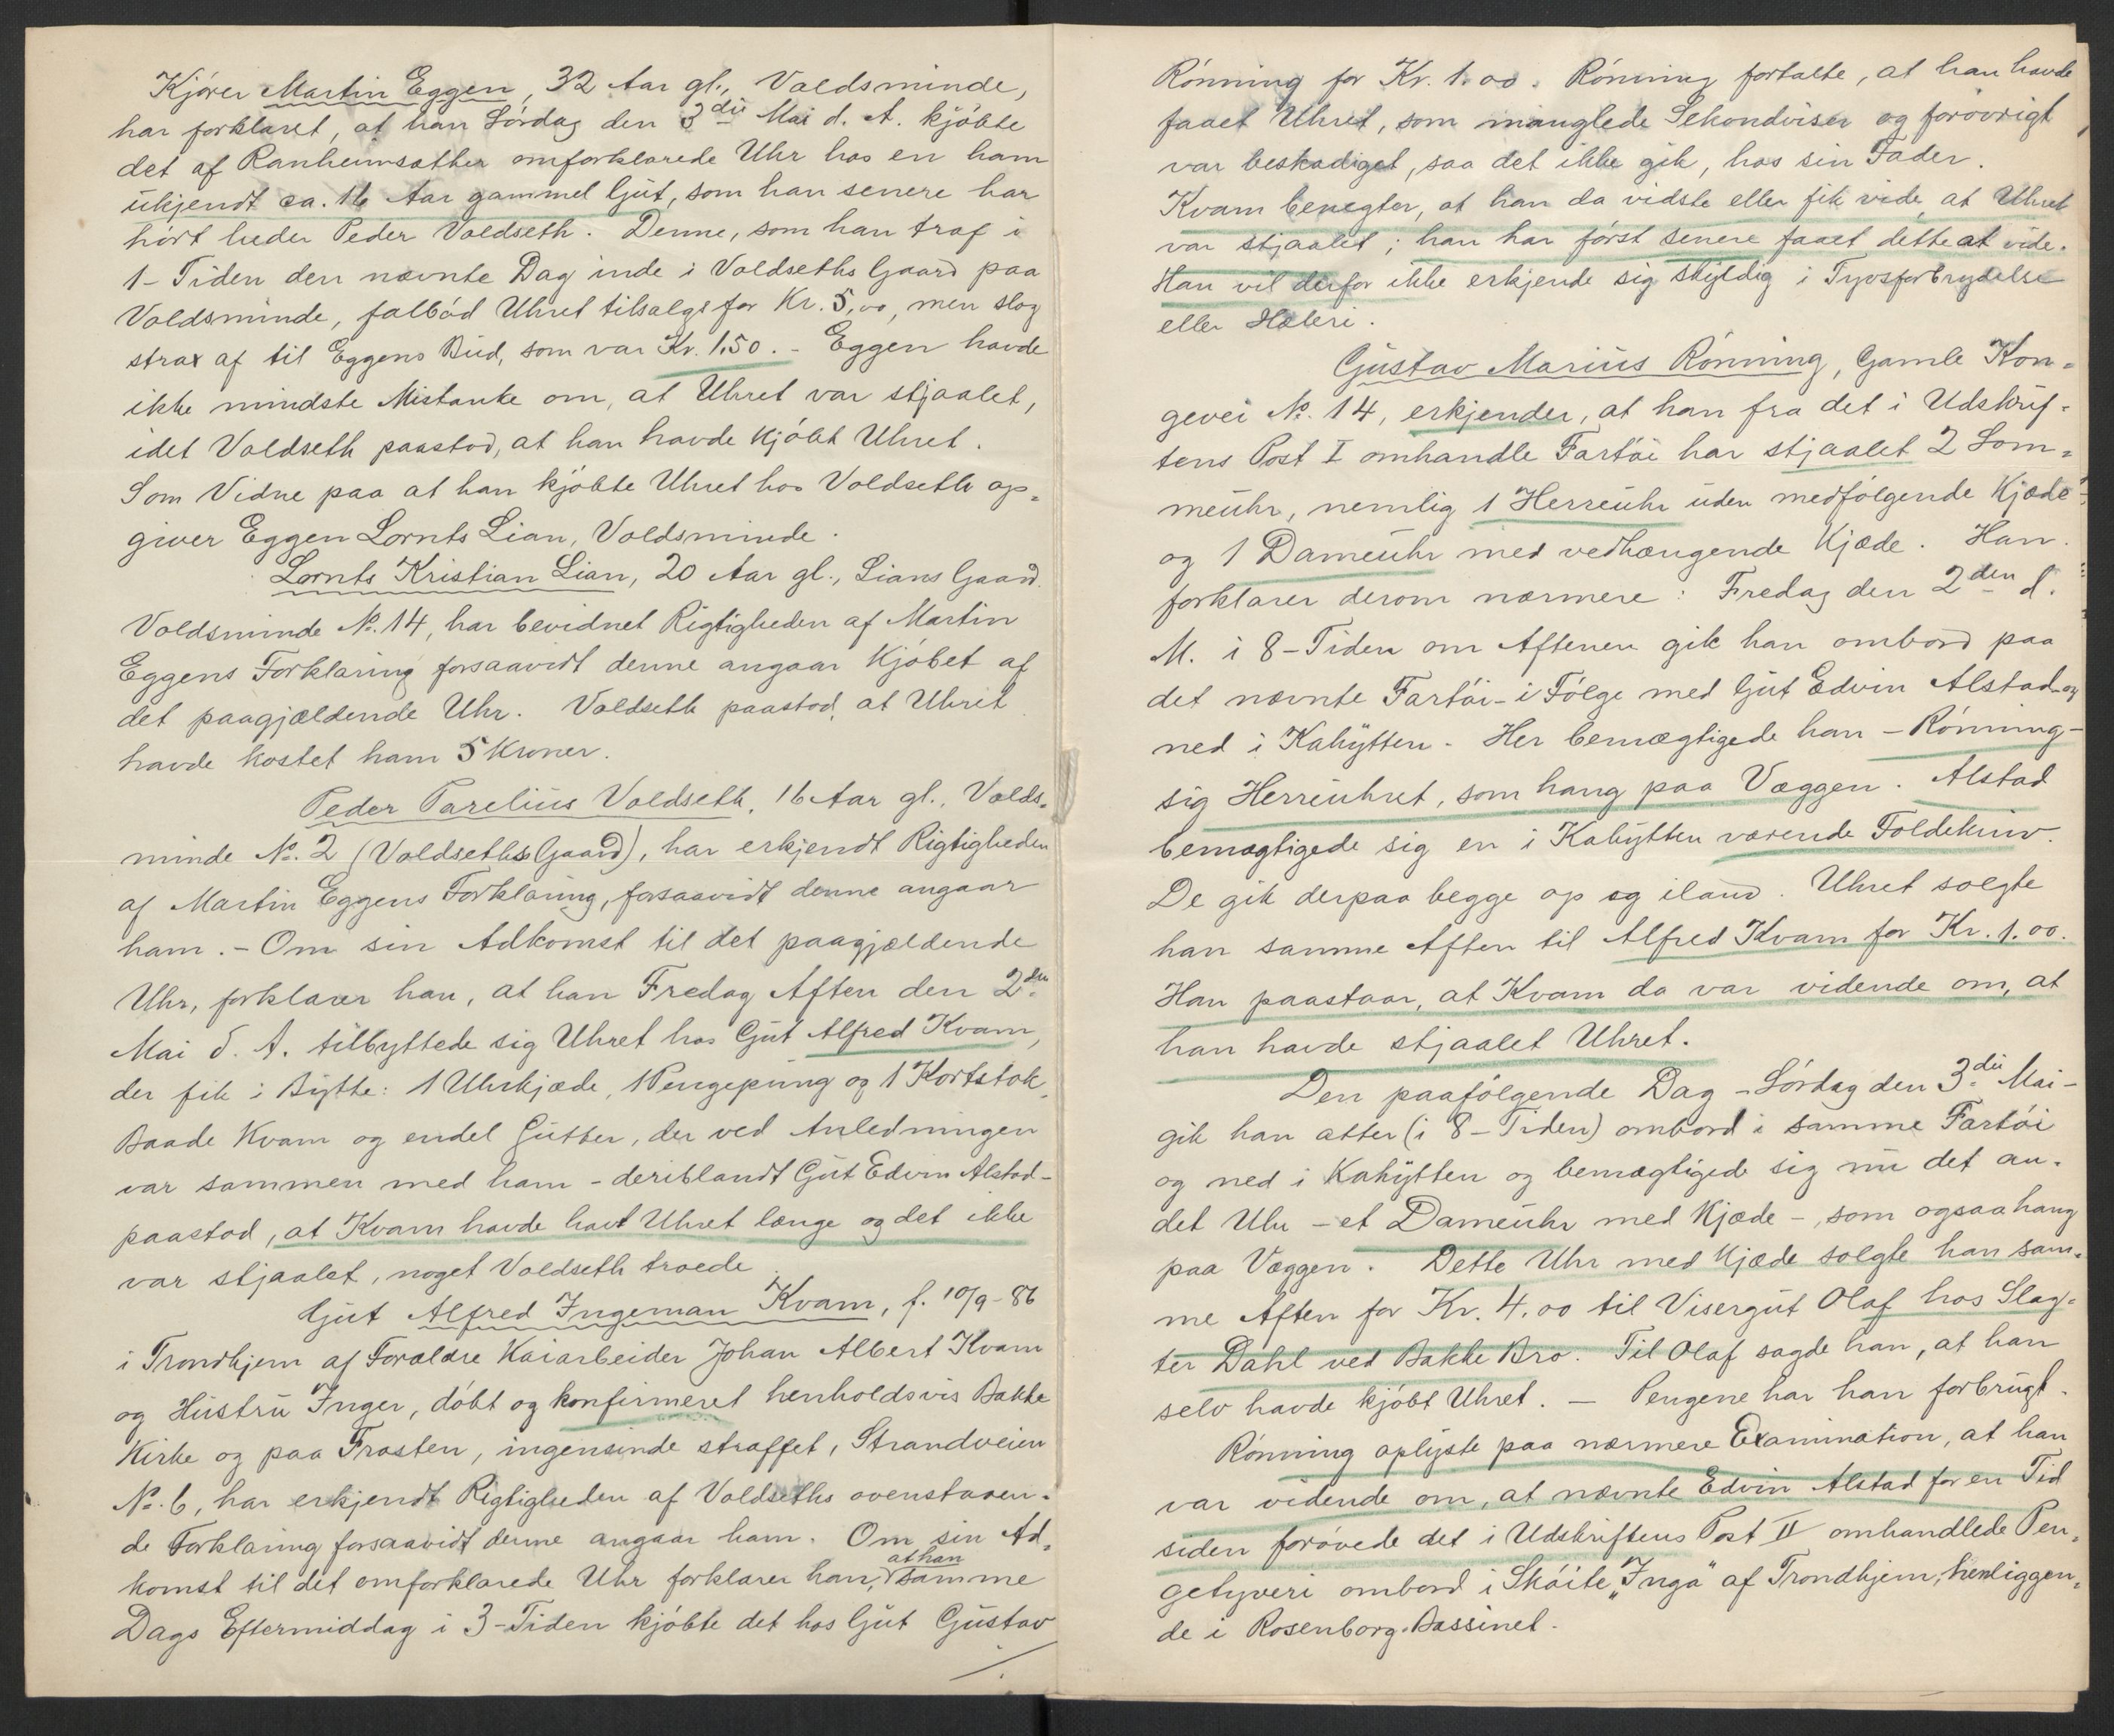 Kjører Martin Eggen, 32 Aar gl., Voldsminde,
har forklaret, at han Lördag den 3die Mai d. A. kjöbte
det af Ranheimsæther omforklarede Uhr hos en ham
ukjendt ca. 16 Aar gammel Gut, som han senere har
hört heder Peder Voldseth. Denne, som han traf i
1-Tiden den nævnte Dag inde i Voldseths Gaard paa
Voldsminde, falböd Uhret tilsalgs for Kr. 5,00, men slog
strax af til Eggens Bud, som var Kr. 1.50. - Eggen havde
ikke mindste Mistanke om, at Uhret var stjaalet,
idet Voldseth paastod, at han havde kjöbt Uhret.
Som Vidne paa at han kjöbte Uhret hos Voldseth op=
giver Eggen Lornts Lian, Voldsminde.
Lornts Kristian Lian, 20 Aar gl., Lians Gaard
Voldsminde No. 14, har bevidnet Rigtigheden af Martin
Eggens Forklaring forsaavidt denne angaar Kjöbet af
det paagjældende Uhr. Voldseth paastod, at Uhret
havde kostet ham 5 Kroner.
Peder Parelius Voldseth, 16 Aar gl., Volds=
minde No. 2 (Voldseths Gaard), har erkjendt Rigtigheden
af Martin Eggens Forklaring, forsaavidt denne angaar
ham. - Om sin Adkomst til det paagjældende
Uhr, forklarer han, at han Fredag Aften den 2den
Mai d. A. tilbyttede sig Uhret hos Gut Alfred Kvam,
der fik i Bytte: 1 Uhrkjæde, 1 Pengepung og 1 Kortstok.
Baade Kvam og endel Gutter, der ved Anledningen
var sammen med ham - deriblandt Gut Edvin Alstad -
paastod, at Kvam havde havt Uhret længe og det ikke
var stjaalet, noget Voldseth troede.
Gut Alfred Ingeman Kvam, f. 10/9-86
i Trondhjem af Forældre Kaiarbeider Johan Albert Kvam
og Hustru Inger, döbt og konfirmeret henholdsvis Bakke
Kirke og paa Frosten, ingensinde straffet, Strandveien
No. 6, har erkjendt Rigtigheden af Voldseths ovenstaaen=
de Forklaring forsaavidt denne angaar ham. Om sin Ad=
komst til det omforklarede Uhr forklarer han, at han samme
Dags Eftermiddag i 3-Tiden kjöbte det hos Gut Gustav
Rönning for Kr. 1.00. Rönning fortalte, at han havde
faaet Uhret, som manglede Sekondviser og forövrigt
var beskadiget, saa det ikke gik, hos sin Fader.
Kvam benegter, at han da vidste eller fik vide, at Uhret
var stjaalet; han har först senere faaet dette at vide.
Han vil derfor ikke erkjende sig skyldig i Tyvsforbrydelse
eller Hæleri.
Gustav Marius Rönning, Gamle Kon=
gevei No. 14, erkjender, at han fra det i Udskrif=
tens Post I omhandle Fartöi har stjaalet 2 Lom=
meuhr, nemlig 1 Herreuhr uden medfölgende Kjæde
og 1 Dameuhr med vedhængende Kjæde. Han
forklarer derom nærmere: Fredag den 2den d.
M. i 8-Tiden om Aftenen gik han ombord paa
det nævnte Fartöi - i Fölge med Gut Edvin Alstad - og
ned i Kahytten. Her bemægtigede han - Rönning -
sig Herreuhret, som hang paa Væggen. Alstad
bemægtigede sig en i Kahytten værende Foldekniv.
De gik derpaa begge op og iland. Uhret solgte
han samme Aften til Alfred Kvam for Kr. 1.00.
Han paastaar, at Kvam da var vidende om, at
han havde stjaalet Uhret.
Den paafölgende Dag - Lördag den 3die Mai -
gik han atter (i 8-Tiden) ombord i samme Fartöi
og ned i Kahytten og bemægtigede sig nu det an=
det Uhr - et Dameuhr med Kjæde -, som ogsaa hang
paa Væggen. Dette Uhr med Kjæde solgte han sam=
me Aften for Kr. 4.00 til Visergut Olaf hos Slag=
ter Dahl ved Bakke Bro. Til Olaf sagde han, at han
selv havde kjöbt Uhret. - Pengene har han forbrugt.
Rönning oplyste paa nærmere Examination, at han
var vidende om, at nævnte Edvin Alstad for en Tid
siden forövede det i Udskriftens Post II omhandlede Pen=
getyveri ombord i Sköite "Inga" af Trondhjem, henliggen=
de i Rosenborg-Bassinet.